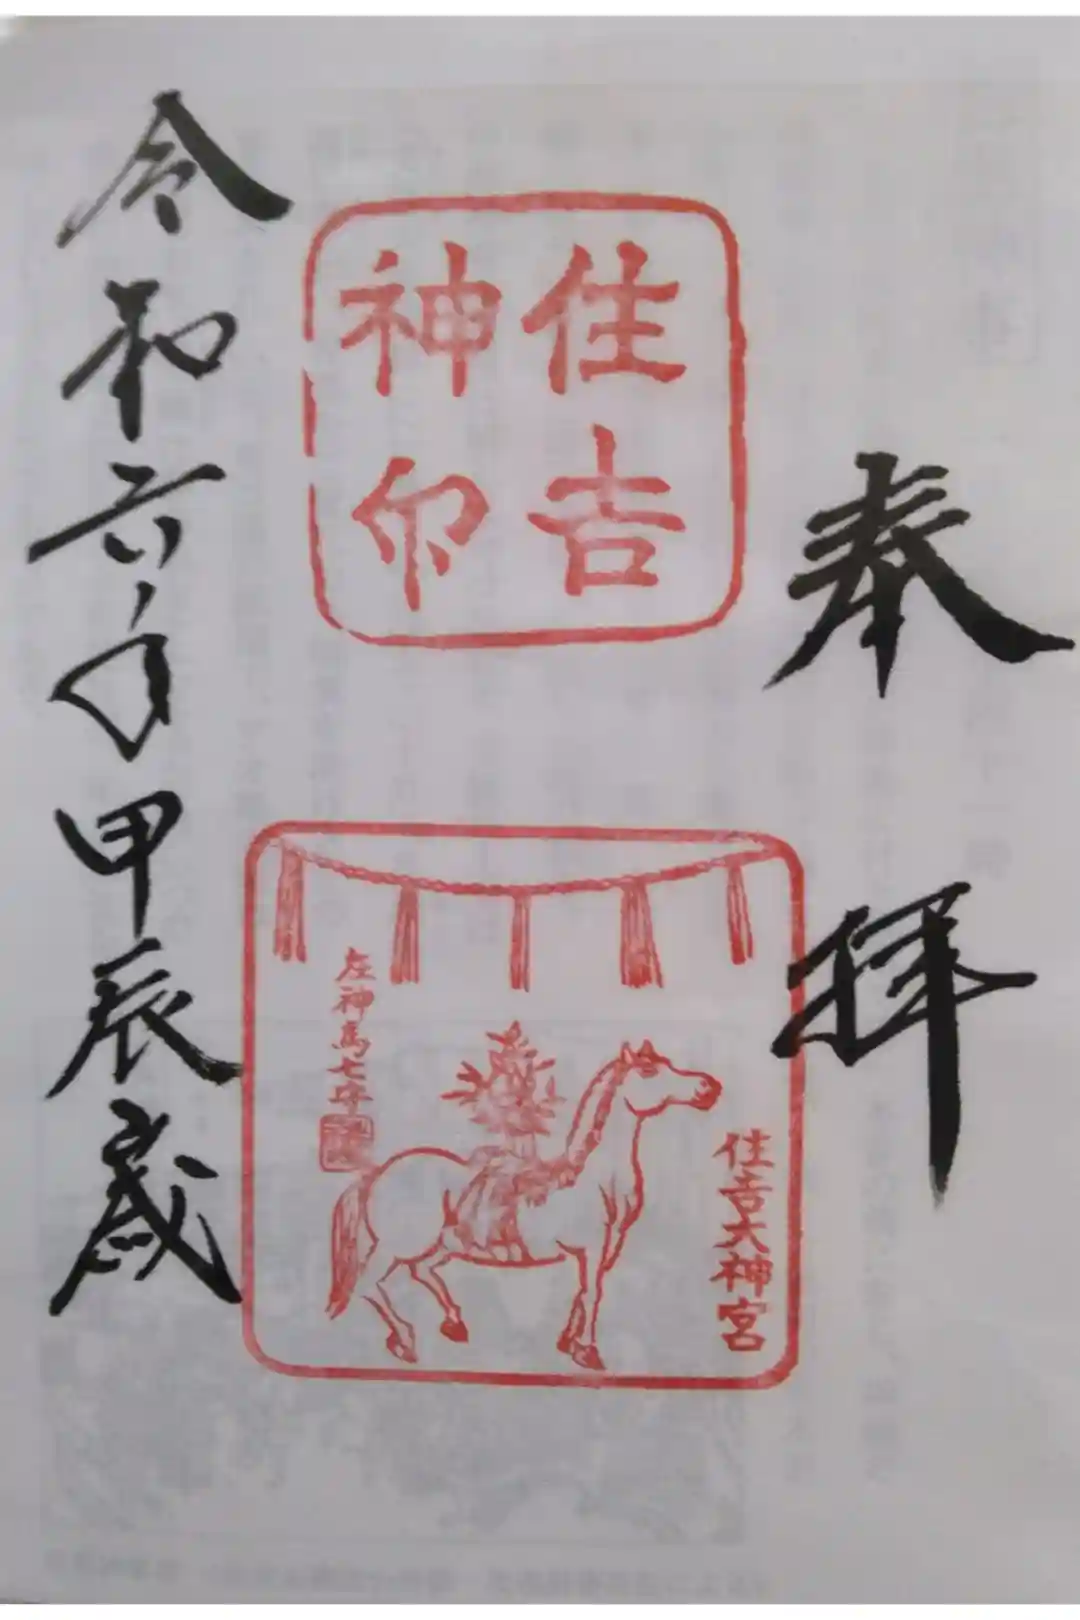 奉拝
住吉
神印
住吉大神宮
左神馬七年
令和六年甲辰歳